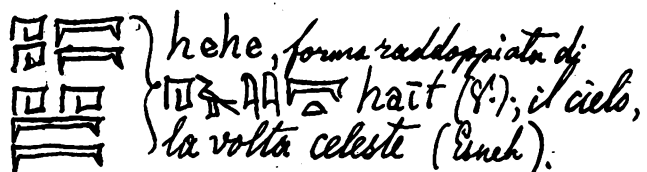 hehe, forma raddoppiata di
haīt (V.); il cielo,
la volta celeste (Esneh).